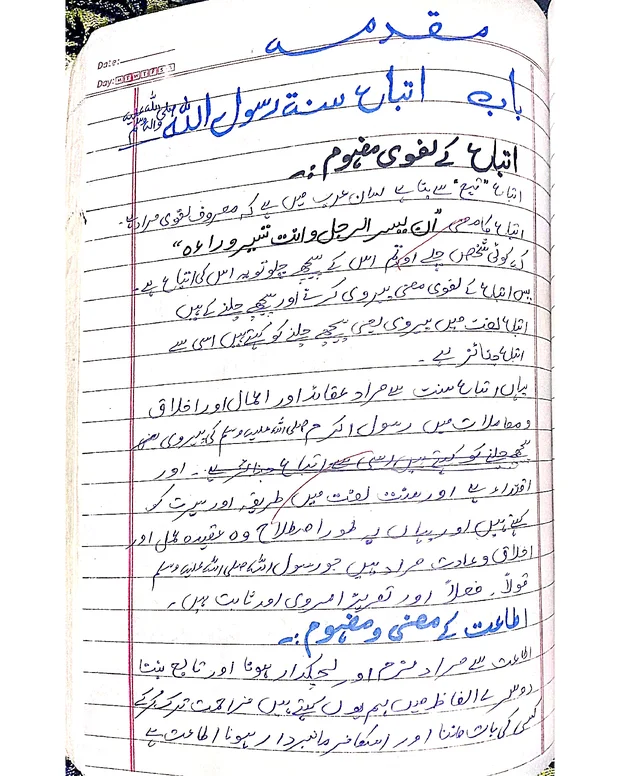 مقدمہ
Date:
Day: M T W T F S S
باب اتباع سنۃ رسول اللہ صلی اللہ علیہ والہ وسلم
اتباع کے لغوی مفہوم :۔
اتباع "تبع" سے بنا ہے لسان عرب میں ہے کہ معروف لغوی مراد ہے۔
اتباع کا معنی "ان یسیر الرجل وانت تسیر وراءہ"
کہ کوئی شخص چلے اور تم اس کے پیچھے چلو تو یہ اس کی اتباع ہے۔
پس اتباع کے لغوی معنی پیروی کرنے اور پیچھے چلنے کے ہیں
اتباع لغت میں پیروی یعنی پیچھے چلنے کو کہتے ہیں اسی سے
اتباع جنائز ہے ۔
یہاں اتباع سنت سے مراد عقائد اور اعمال اور اخلاق
و معاملات میں رسول اکرم صلی اللہ علیہ وسلم کی پیروی
پیچھے چلنے کو کہتے ہیں اسی سے اتباع جنائز ہے ۔ اور
اقتداء ہے اور سنت لغت میں طریقہ اور سیرت کو
کہتے ہیں اور یہاں پہ بطور اصطلاح وہ عقیدہ عمل اور
اخلاق و عادت مراد ہیں جو رسول اللہ صلی اللہ علیہ وسلم
قولاً۔ فعلاً اور تقریراً مروی اور ثابت ہیں۔
اطاعت کے معنی و مفہوم :۔
اطاعت سے مراد نرم اور لچکدار ہونا اور تابع بننا
دوسرے الفاظ میں ہم یوں کہتے ہیں مزاحمت ترک کر کے
کسی کی بات ماننا اور اسکا فرمانبردار ہونا اطاعت ہے